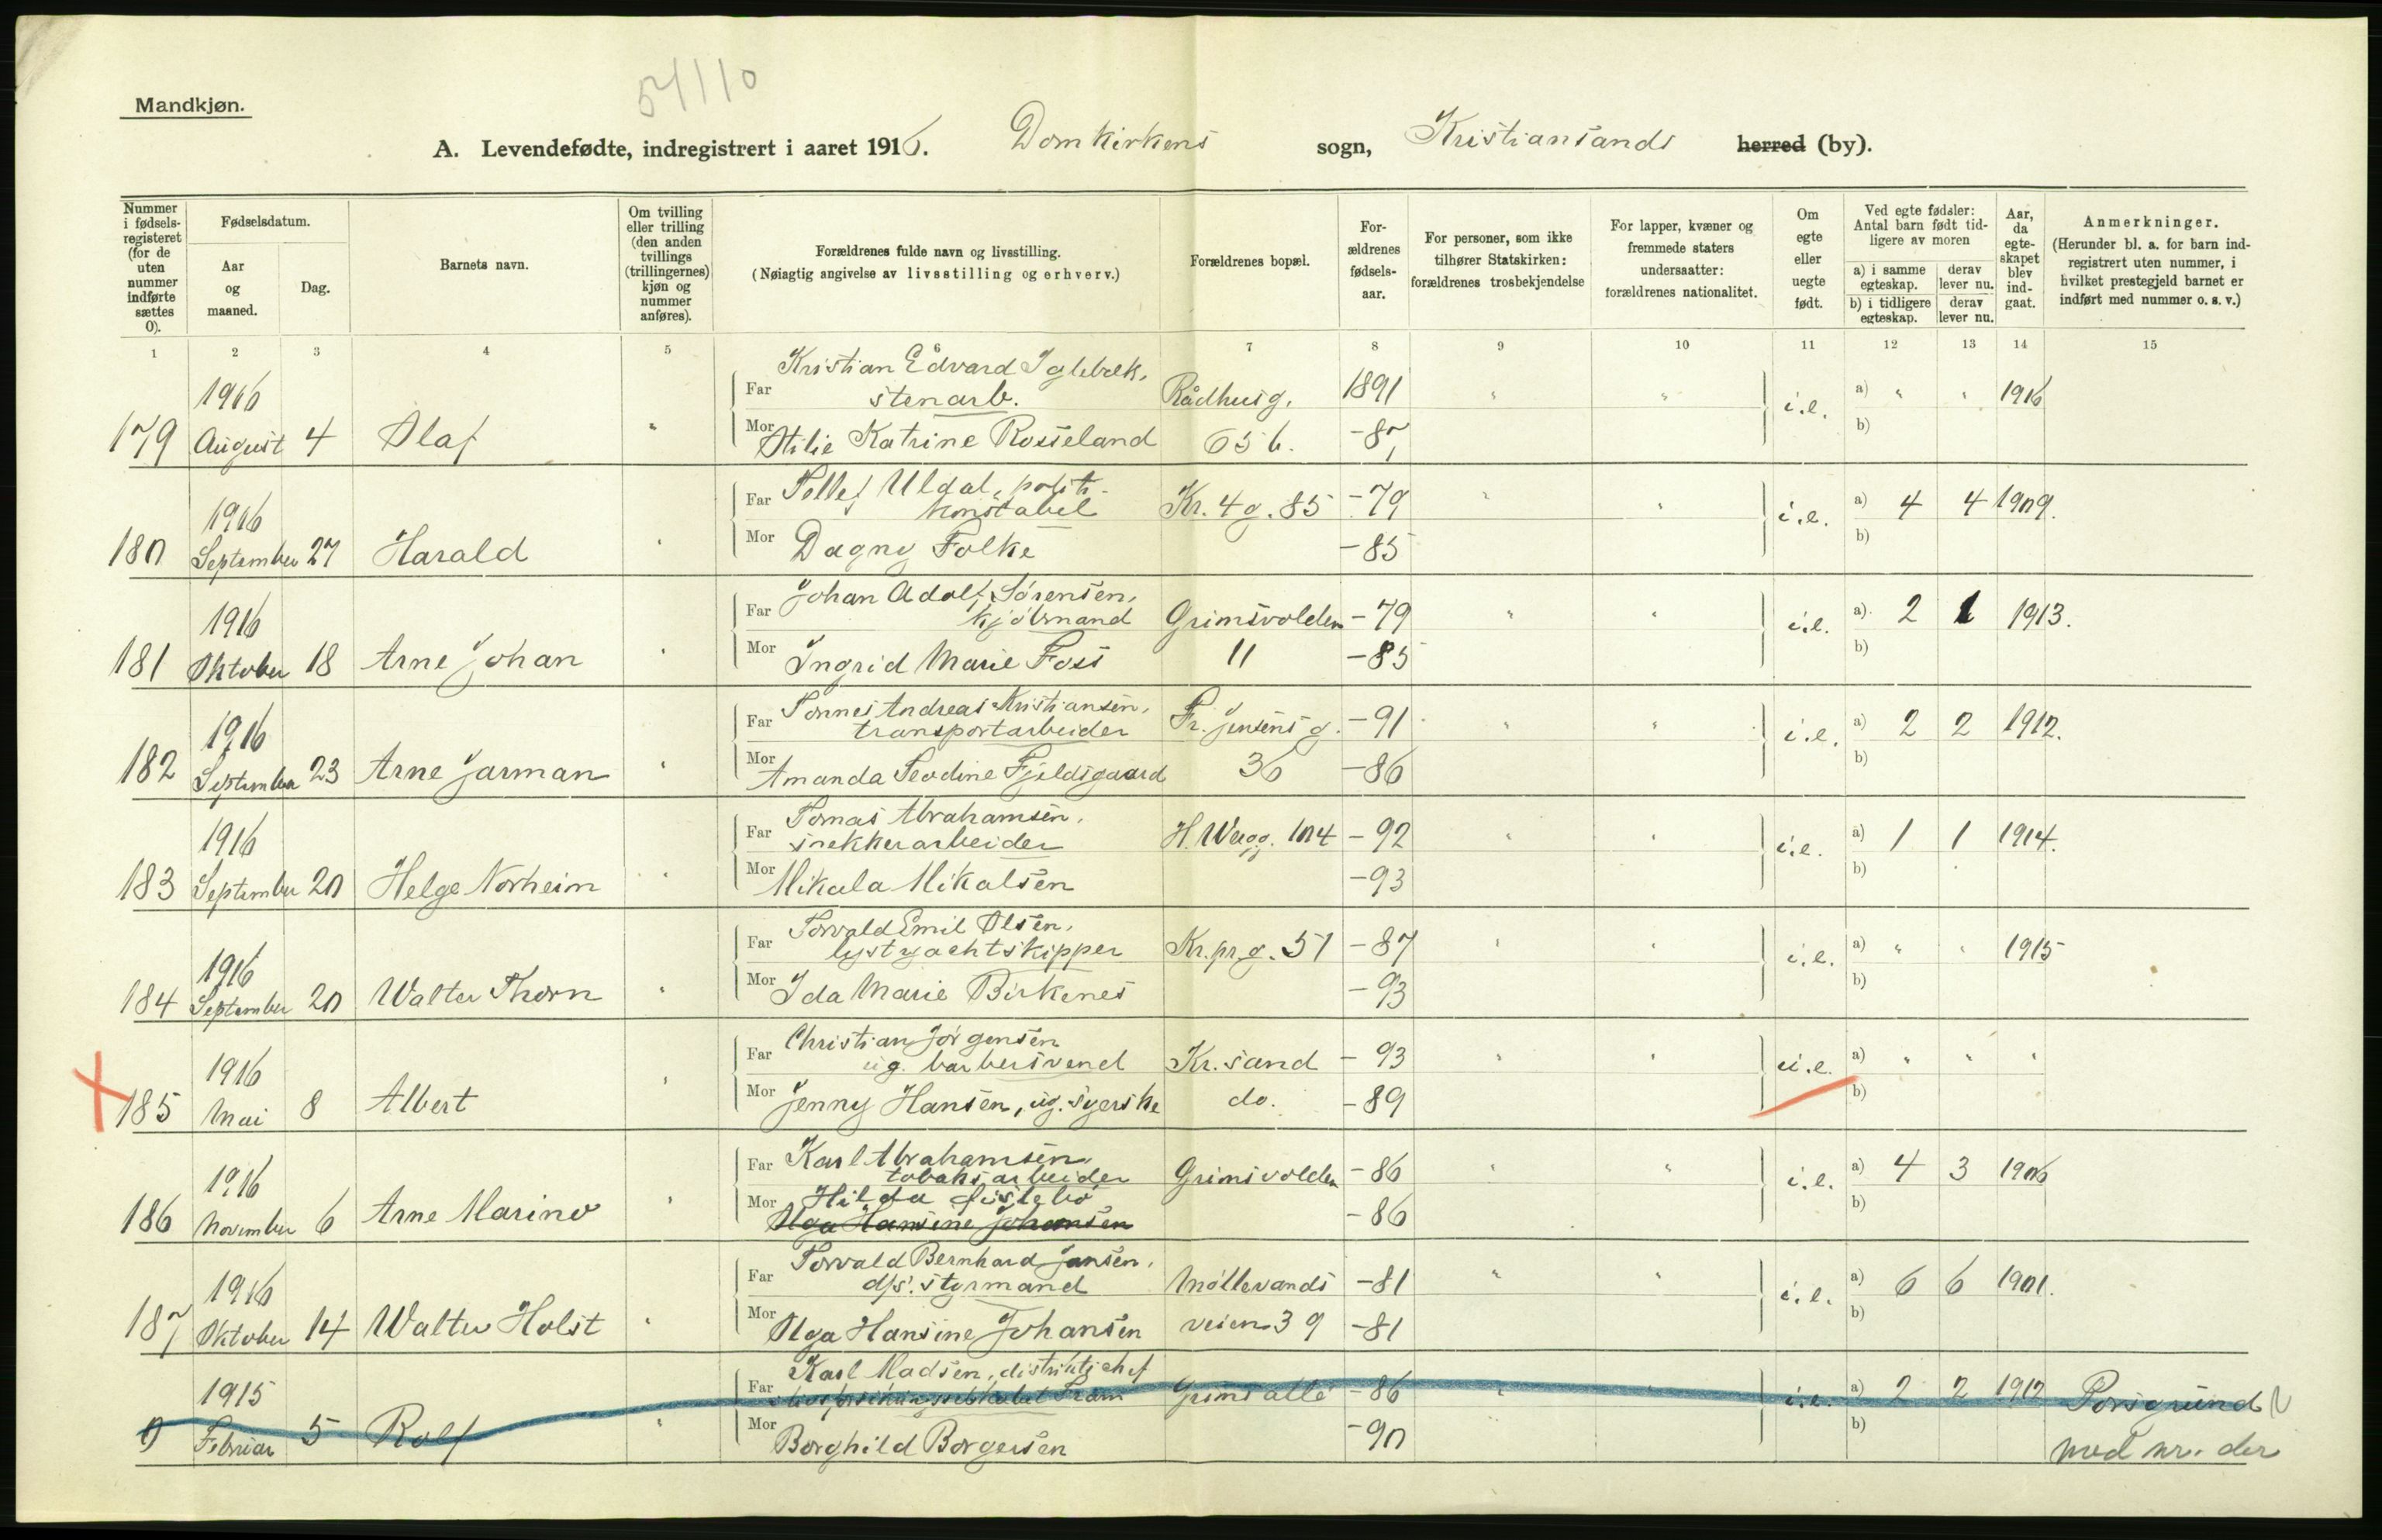 54110
Mandkjøn.
A. Levendefødte, indregistrert i aaret 1916. Domkirkens sogn, Kristiansands herred (by).
Nummer i fødsels-registeret (for de uten nummer indførte sættes 0).
Fødselsdatum.
Aar og maaned.
Dag.
Barnets navn.
Om tvilling eller trilling (den anden tvillings (trillingernes) kjøn og nummer anføres).
Forældrenes fulde navn og livsstilling.
(Nøiagtig angivelse av livsstilling og erhverv.)
Forældrenes bopæl.
For-ældrenes fødsels-aar.
For personer, som ikke tilhører Statskirken: forældrenes trosbekjendelse
For lapper, kvæner og fremmede staters undersaatter: forældrenes nationalitet.
Om egte eller uegte født.
Ved egte fødsler: Antal barn født tid-ligere av moren
a) i samme egteskap. derav lever nu.
b) i tidligere egteskap. derav lever nu.
Aar, da egte-skapet blev ind-gaat.
Anmerkninger.
(Herunder bl. a. for barn ind-registrert uten nummer, i hvilket prestegjeld barnet er indført med nummer o. s. v.)
1 2 3 4 5 6 7 8 9 10 11 12 13 14 15
Kristian Edvard Iglebæk,
1916 Far stenarb. Rådhusg. 1891 " " i.e. a) " " 1916
179 August 4 Olaf " Mor Otilie Katrine Rosseland 65 b. -87 b)
Far Tellef Uldal, politi-
1916 konstabel Kr. 4 g. 85 -79 " " i.e. a) 4 4 1909.
180 September 27 Harald " Mor Dagny Folke -85 b)
Far Johan Adolf Sørensen,
1916 kjøbmand Grimsvolden -79 " " i.e. a) 2 1 1913.
181 Oktober 18 Arne Johan " Mor Ingrid Marie Foss 11 -85 b)
Far Tønnes Andreas Kristiansen,
1916 transportarbeider Fr. Jensens g. -91 " " i.e. a) 2 2 1912.
182 September 23 Arne Jarman " Mor Amanda Teodine Fjeldsgaard 36 -86 b)
Far Tomas Abrahamsen,
1916 snekkerarbeider H. Werg. 104 -92 " " i.e. a) 1 1 1914.
183 September 20 Helge Norheim " Mor Mikala Mikalsen -93 b)
Far Torvald Emil Olsen,
1916 lystyachtskipper Kr. pr. g. 51 -87 " " i.e. a) " " 1915
184 September 20 Walter Thorn " Mor Ida Marie Birkenes -93 b)
Far Christian Jørgensen
1916 ug. barbersvend Kr.sand -93 " " u.e. a) " " "
185 Mai 8 Albert " Mor Jenny Hansen, ug. syerske do. -89 b)
Far Karl Abrahamsen,
1916 tobaksarbeider Grimsvolden -86 " " i.e. a) 4 3 1906
Mor Hilda
186 November 6 Arne Marino " Olga Hansine Johansen -86 b)
Far Torvald Bernhard Jansen,
1916 d/s. styrmand Møllevands -81 " " i.e. a) 6 6 1901.
187 Oktober 14 Walter Holst " Mor Olga Hansine Johansen veien 39 -81 b)
Karl Madsen, distriktschef
1915 Far livsforsikringsselskabet Fram Grims alle -86 " i.e. a) 2 2 1912 Porsgrund
0 Februar 5 Rolf " Mor Borghild Borgersen -90 b) med nr. der